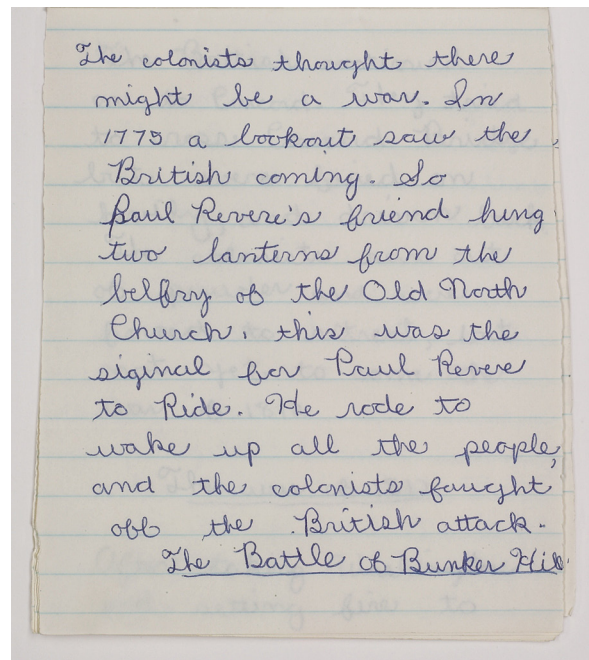 The colonists thought there
might be a war. In
1775 a lookout saw the
British coming. So
Paul Revere's friend hung
two lanterns from the
belfry of the Old North
Church. this was the
siginal for Paul Revere
to Ride. He rode to
wake up all the people,
and the colonists faught
off the British attack.
The Battle of Bunker Hill